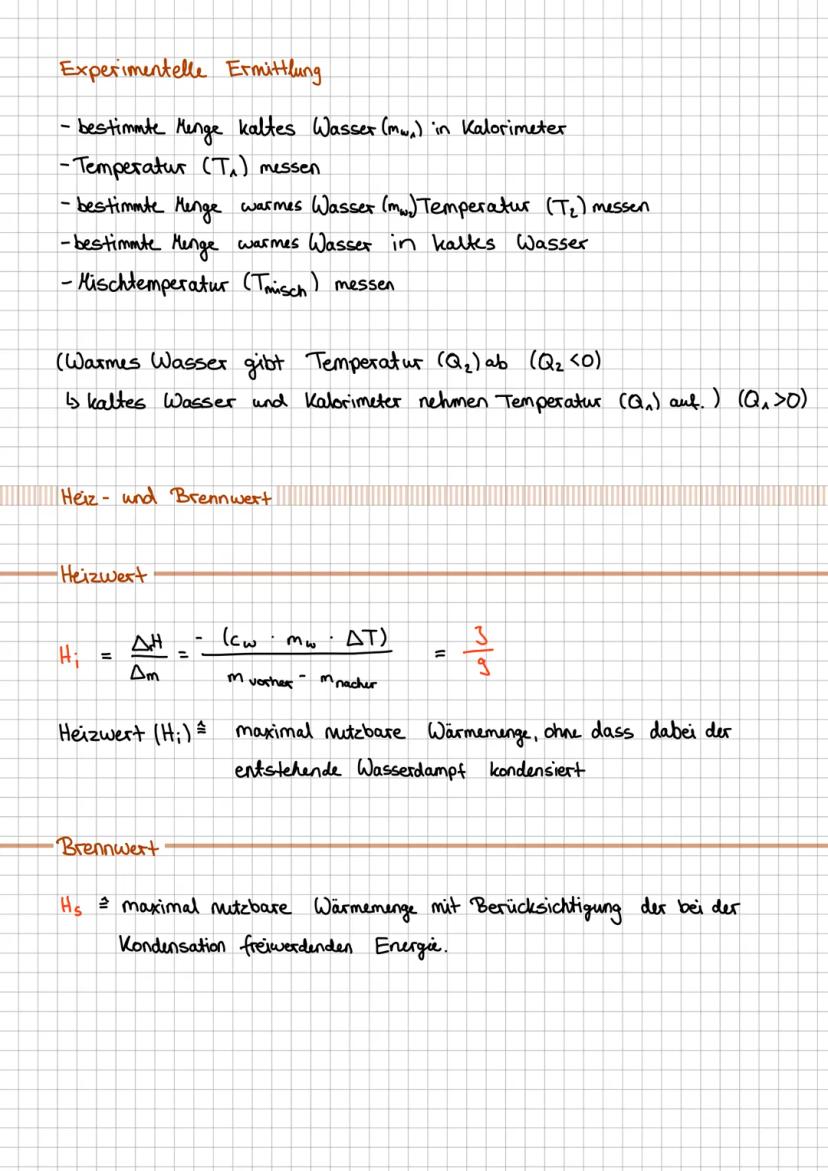 Experimentelle Ermittlung
- bestimmte Menge kaltes Wasser (mw₁) in Kalorimeter
- Temperatur (T₁) messen
- bestimmte Menge warmes Wasser (mw₂) Temperatur (T₂) messen
- bestimmte Menge warmes Wasser in kaltes Wasser
- Mischtemperatur (Tmisch) messen
(Warmes Wasser gibt Temperatur (Q₂) ab (Q₂ <0)
↳ kaltes Wasser und Kalorimeter nehmen Temperatur (Q₁) auf.) (Q₁ >0)
Heiz- und Brennwert
Heizwert
Hi = ΔH / Δm = - (cw · mw · ΔT) / m vorher - m nacher = J / g
Heizwert (Hi) ≙ maximal nutzbare Wärmemenge, ohne dass dabei der
entstehende Wasserdampf kondensiert
Brennwert
Hs ≙ maximal nutzbare Wärmemenge mit Berücksichtigung der bei der
Kondensation freiwerdenden Energie.